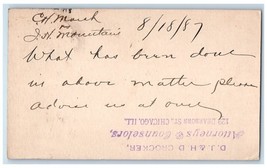 C.H. Marsh
8/18/87
J.H. Mountain
What has been done
in above matter please
advise us at once
D. J. & H. D. CROCKER,
Attorneys & Counselors,
ST. CHICAGO, ILL.